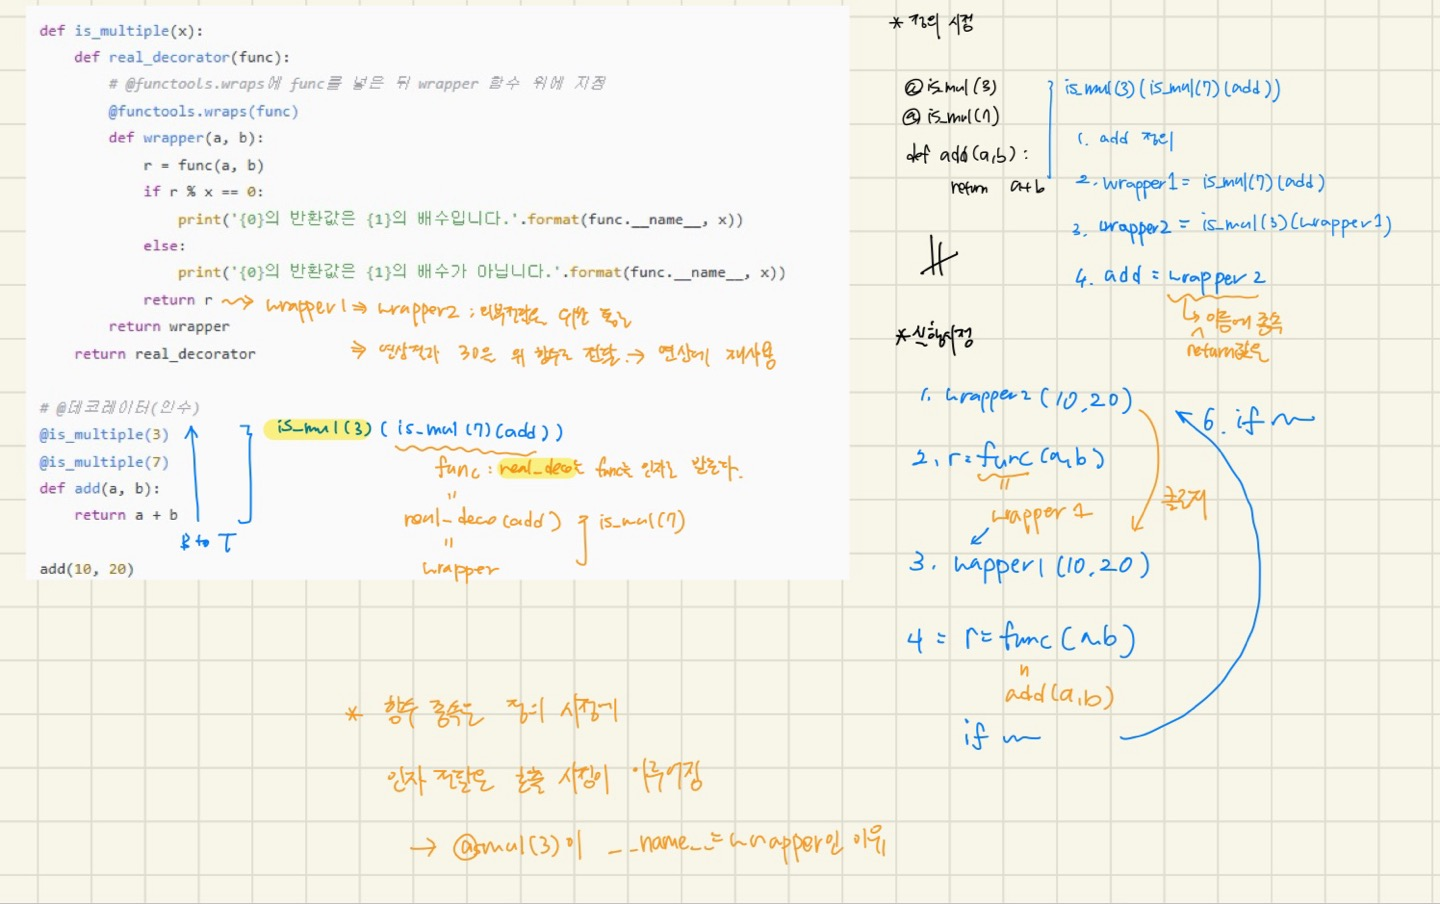 def is_multiple(x):
def real_decorator(func):
# @functools.wraps에 func를 넣은 뒤 wrapper 함수 위에 지정
@functools.wraps(func)
def wrapper(a, b):
r = func(a, b)
if r % x == 0:
print('{0}의 반환값은 {1}의 배수입니다.'.format(func.__name__, x))
else:
print('{0}의 반환값은 {1}의 배수가 아닙니다.'.format(func.__name__, x))
return r → wrapper1 ⇒ wrapper2 :
return wrapper
⇒ 연상결과 30은 위 함수로 전달 → 연산에 재사용
return real_decorator
# @데코레이터(인수)
@is_multiple(3)
@is_multiple(7)
def add(a, b):
return a + b
add(10, 20)
B to T
is_mul(3) ( is_mul(7)(add))
func : real_deco는 func을 인자로 받는다.
"
real_deco(add)
is_mul(7)
"
wrapper
* 함수 종속은 정의 시점에
인자 전달은 호출 시점이 이루어짐
→ @smul(3)이 __name__=wrapper인 이유
* 정의 시점
@is_mul(3)
@is_mul(7)
def add(a,b):
return a+b
is_mul(3)(is_mul(7)(add))
1. add 정의
2. wrapper1 = is_mul(7)(add)
3. wrapper2 = is_mul(3)(wrapper1)
4. add = wrapper2
↳ 이름에 종속
return값은
* 실행시점
1. wrapper2(10,20)
2. r=func(a,b)
"
wrapper1
클로저
3. wapper1(10,20)
4 = r=func(a,b)
"
add(a,b)
if ~
6. if ~